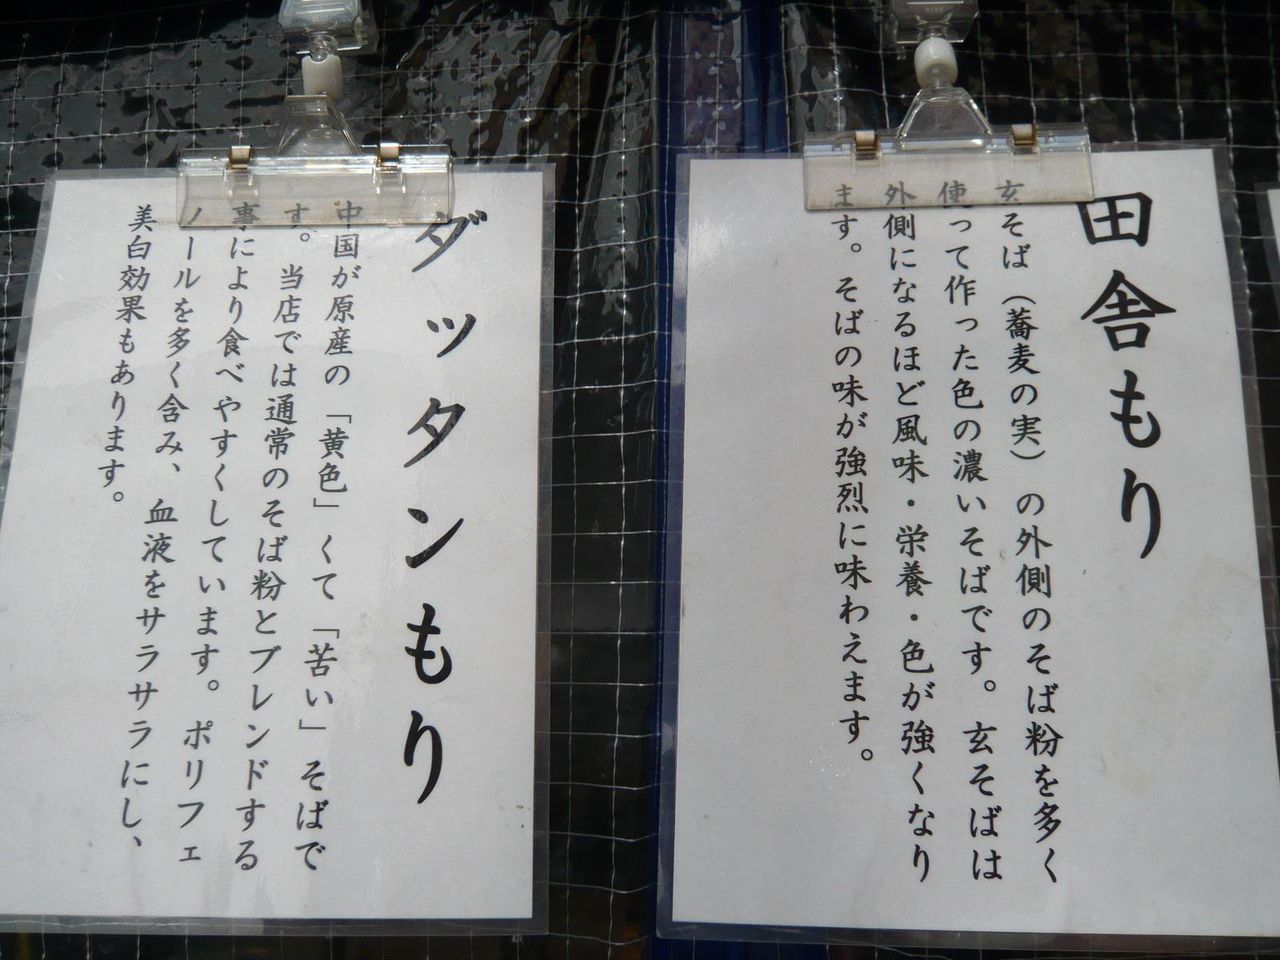 田舎もり
玄そば（蕎麦の実）の外側のそば粉を多く
使って作った色の濃いそばです。玄そばは
外側になるほど風味・栄養・色が強くなり
ます。そばの味が強烈に味わえます。
ダッタンもり
中国が原産の「黄色」くて「苦い」そばで
す。当店では通常のそば粉とブレンドする
事により食べやすくしています。ポリフェ
ノールを多く含み、血液をサラサラにし、
美白効果もあります。